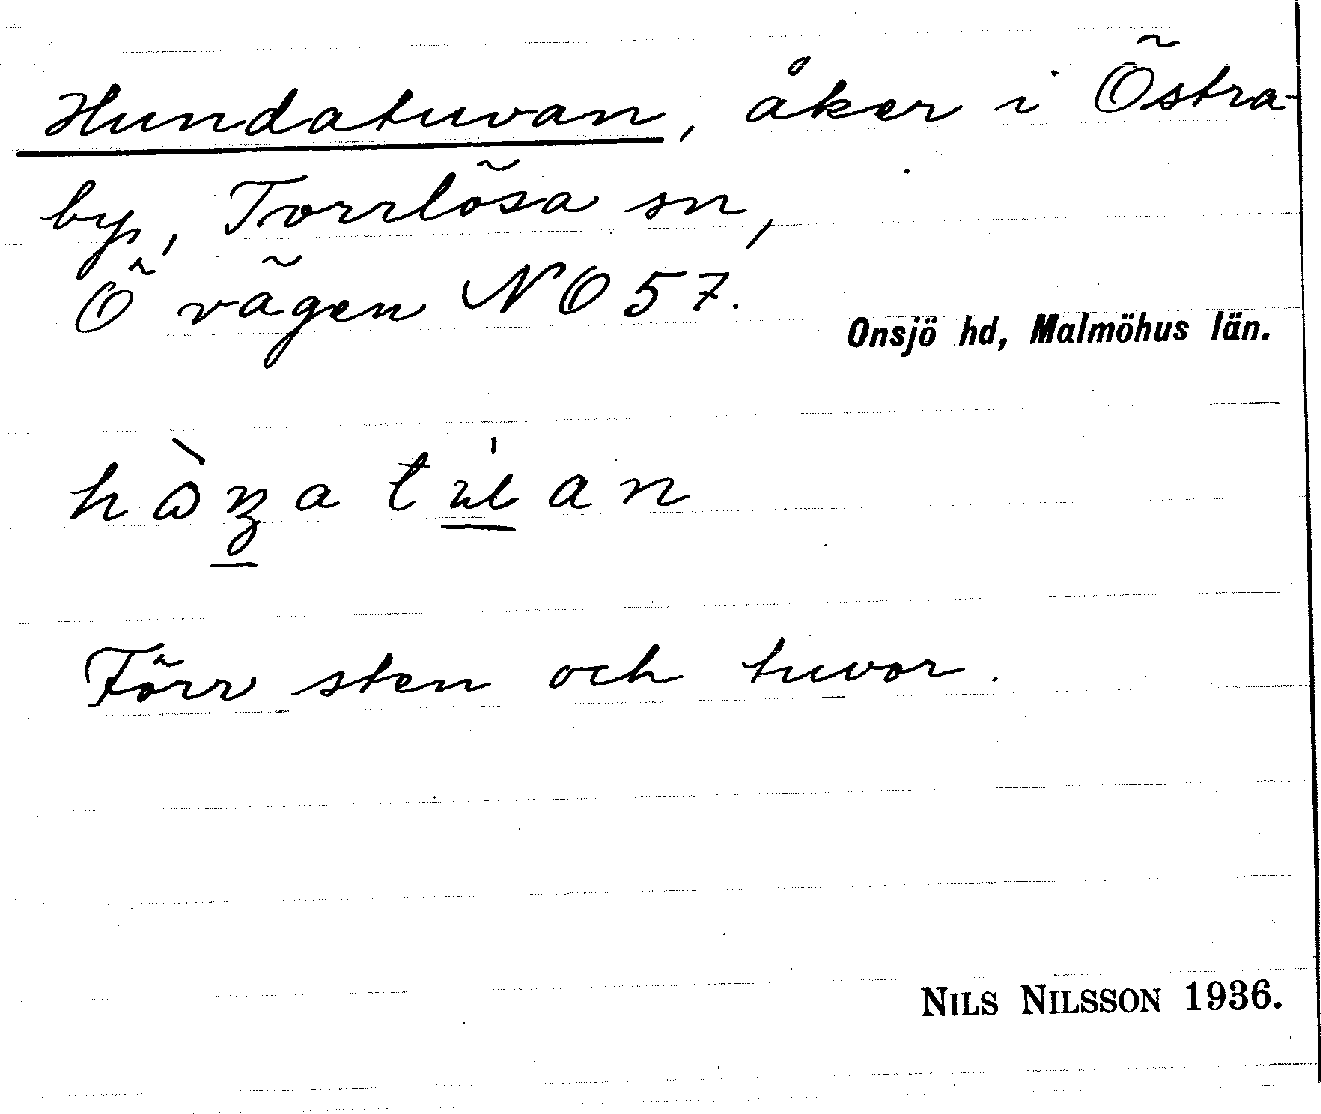 Hundatuvan, åker i Östra-
by, Torrlösa sn,
Ö vägen NO 57.
Onsjö hd, Malmöhus län.
Förr sten och tuvor.
NILS NILSSON 1936.